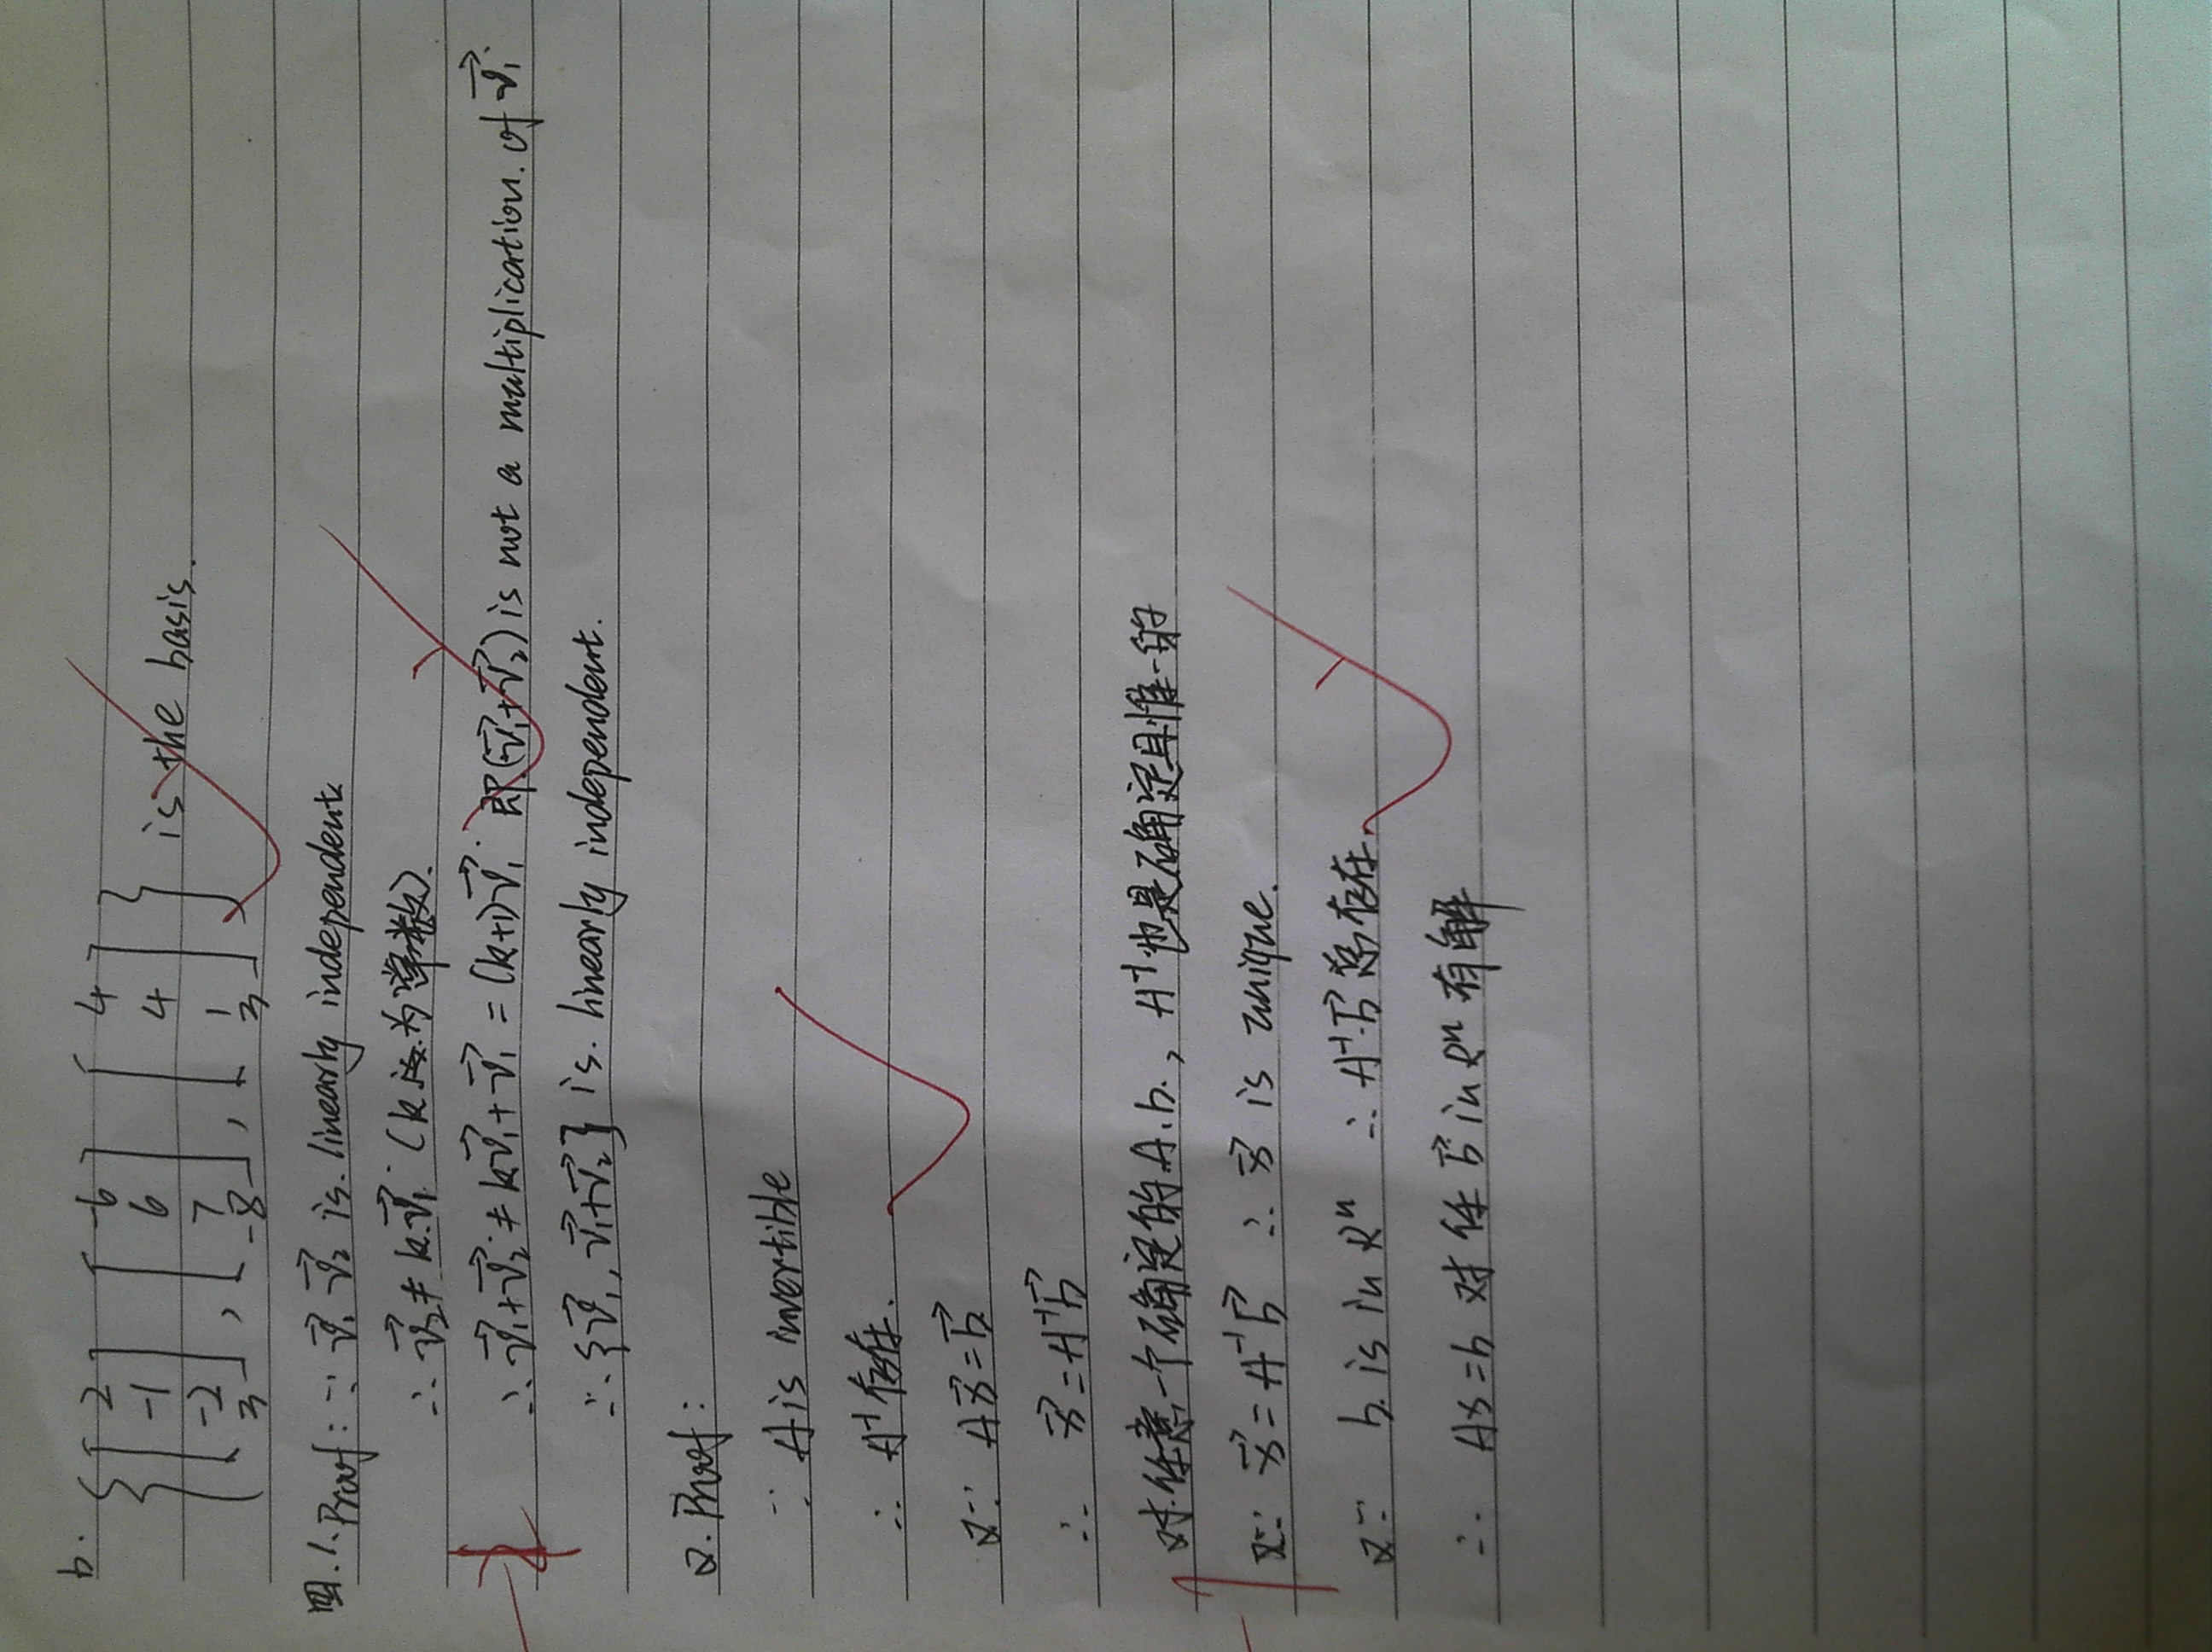 b. { [2 -1 -2 3], [-6 6 7 -8], [4 4 1 3] } is the basis.
四.1. Proof: ∵ v⃗₁ v⃗₂ is. linearly independent
∴ v⃗₂ ≠ k·v⃗₁ (k 为常数).
∴ v⃗₁+v⃗₂ ≠ kv⃗₁+v⃗₁ = (k+1)v⃗₁ 即(v⃗₁+v⃗₂) is not a multiplication. of v⃗₁
∴ {v⃗₁, v⃗₁+v⃗₂} is. linearly independent.
2. Proof:
∵ A is invertible
∴ A⁻¹存在.
又∵ Ax⃗=b⃗
∴ x⃗=A⁻¹b⃗
对任意一个确定的A.b., A⁻¹也是确定且惟一的
又∵ x⃗=A⁻¹b⃗ ∴ x⃗ is unique.
又∵ b. is in Rⁿ ∴ A⁻¹·b⃗ 总存在.
∴ Ax=b 对任 b⃗ in Rⁿ 有解